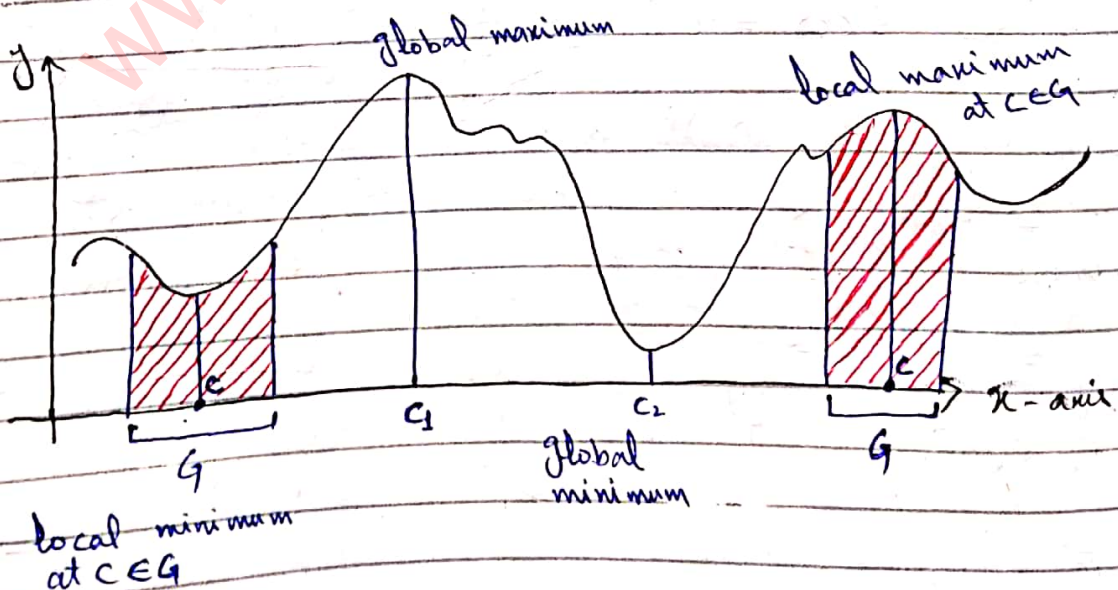 WW
global maximum
y
local maximum
at C∈G
C
C
x-axis
C1
C2
G
G
global
minimum
local minimum
at C∈G